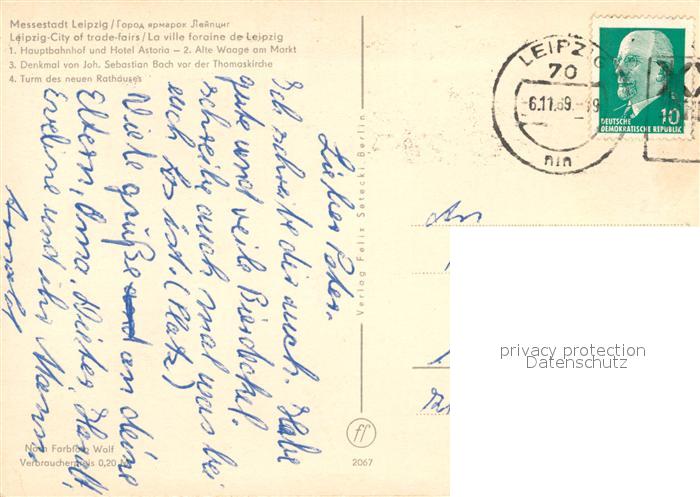 Messestadt Leipzig / Город ярмарок Лейпциг
Leipzig-City of trade-fairs / La ville foraine de Leipzig
1. Hauptbahnhof und Hotel Astoria — 2. Alte Waage am Markt
3. Denkmal von Joh. Sebastian Bach vor der Thomaskirche
4. Turm des neuen Rathauses
Lieber Peter.
Ich schreibe dir auch. Habe
gute und viele Bierdeckel.
schreib auch mal was bei
euch los ist. (Platz)
Viele grüße an deine
Eltern, Oma, Dieter, Hardi,
Eveline und ihr Mann.
Arnold
Nach Farbfoto Wolf
Verbraucherpreis 0,20 M
Verlag Felix Setecki Berlin
ff
2067
LEIPZIG
70
6.11.69
nin
10
DEUTSCHE
DEMOKRATISCHE REPUBLIK
An
privacy protection
Datenschutz